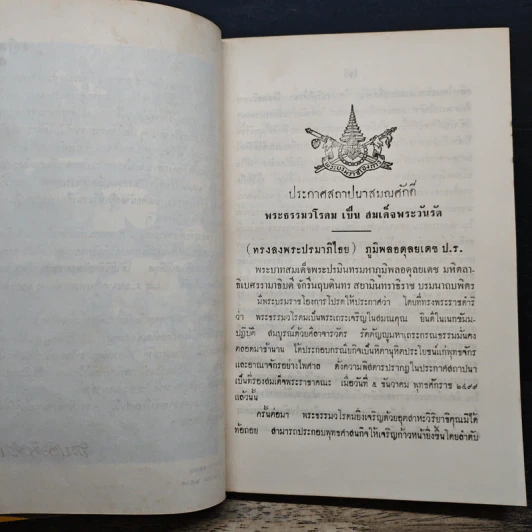 ประกาศสถาปนาสมณศักดิ์
พระธรรมวโรดม เป็น สมเด็จพระวันรัต
(ทรงลงพระปรมาภิไธย) ภูมิพลอดุลยเดช ป.ร.
พระบาทสมเด็จพระปรมินทรมหาภูมิพลอดุลยเดช มหิตลา-
ธิเบศรรามาธิบดี จักรีนฤบดินทร สยามินทราธิราช บรมนาถบพิตร
มีพระบรมราชโองการโปรดให้ประกาศว่า โดยที่ทรงพระราชดำริ
ว่า พระธรรมวโรดมเป็นพระเถระเจริญในสมณคุณ ยินดีในเนกขัมม-
ปฏิบัติ สมบูรณ์ด้วยศีลาจารวัตร รัตตัญญูมหาเถรกรณธรรมมั่นคง
ตลอดมาช้านาน ได้ประกอบกรณียกิจเป็นหิตานุหิตประโยชน์แก่พุทธจักร
และอาณาจักรอย่างไพศาล ดั่งความพิสดารปรากฏในประกาศสถาปนา
เป็นที่รองสมเด็จพระราชาคณะ เมื่อวันที่ ๕ ธันวาคม พุทธศักราช ๒๔๙๙
แล้วนั้น
ครั้นต่อมา พระธรรมวโรดมยิ่งเจริญด้วยอุตสาหะวิริยาธิคุณมิได้
ท้อถอย สามารถประกอบพุทธศาสนกิจให้เจริญก้าวหน้ายิ่งขึ้นโดยลำดับ